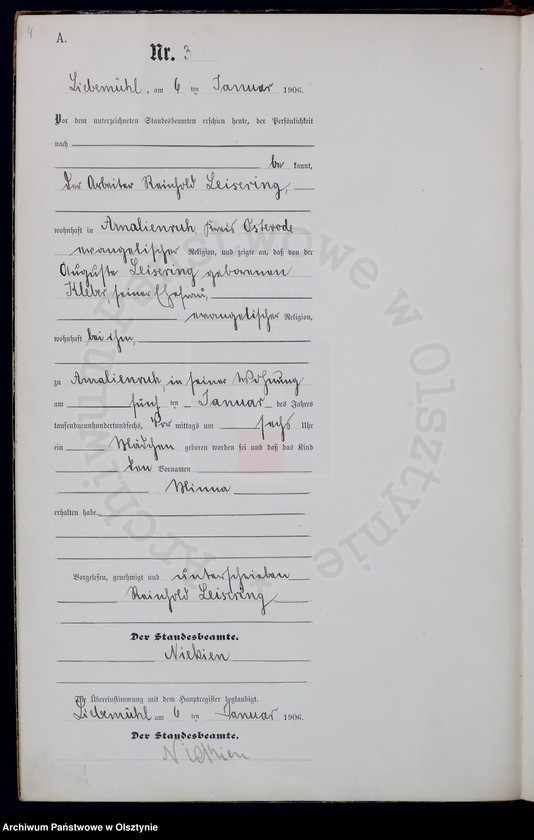 4
A.
Nr. 3
Liebemühl, am 6 ten Januar 1906.
Vor dem unterzeichneten Standesbeamten erschien heute, der Persönlichkeit
nach
be kannt,
der Arbeiter Reinhold Leisering,
wohnhaft in Amalienruh, Kreis Osterode
evangelischer Religion, und zeigte an, daß von der
Auguste Leisering geborenen
Kleber, seiner Ehefrau,
evangelischer Religion,
wohnhaft bei ihm,
zu Amalienruh, in seiner Wohnung
am fünf ten Januar des Jahres
tausendneunhundertsechs, Vor mittags um sechs Uhr
ein Mädchen geboren worden sei und daß das Kind
den Vornamen
Minna
erhalten habe.
Vorgelesen, genehmigt und unterschrieben
Reinhold Leisering
Der Standesbeamte.
Niekien
Für Übereinstimmung mit dem Hauptregister beglaubigt.
Liebemühl am 6 ten Januar 1906.
Der Standesbeamte.
Niekien
Archiwum Państwowe w Olsztynie
Archiwum Państwowe w Olsztynie